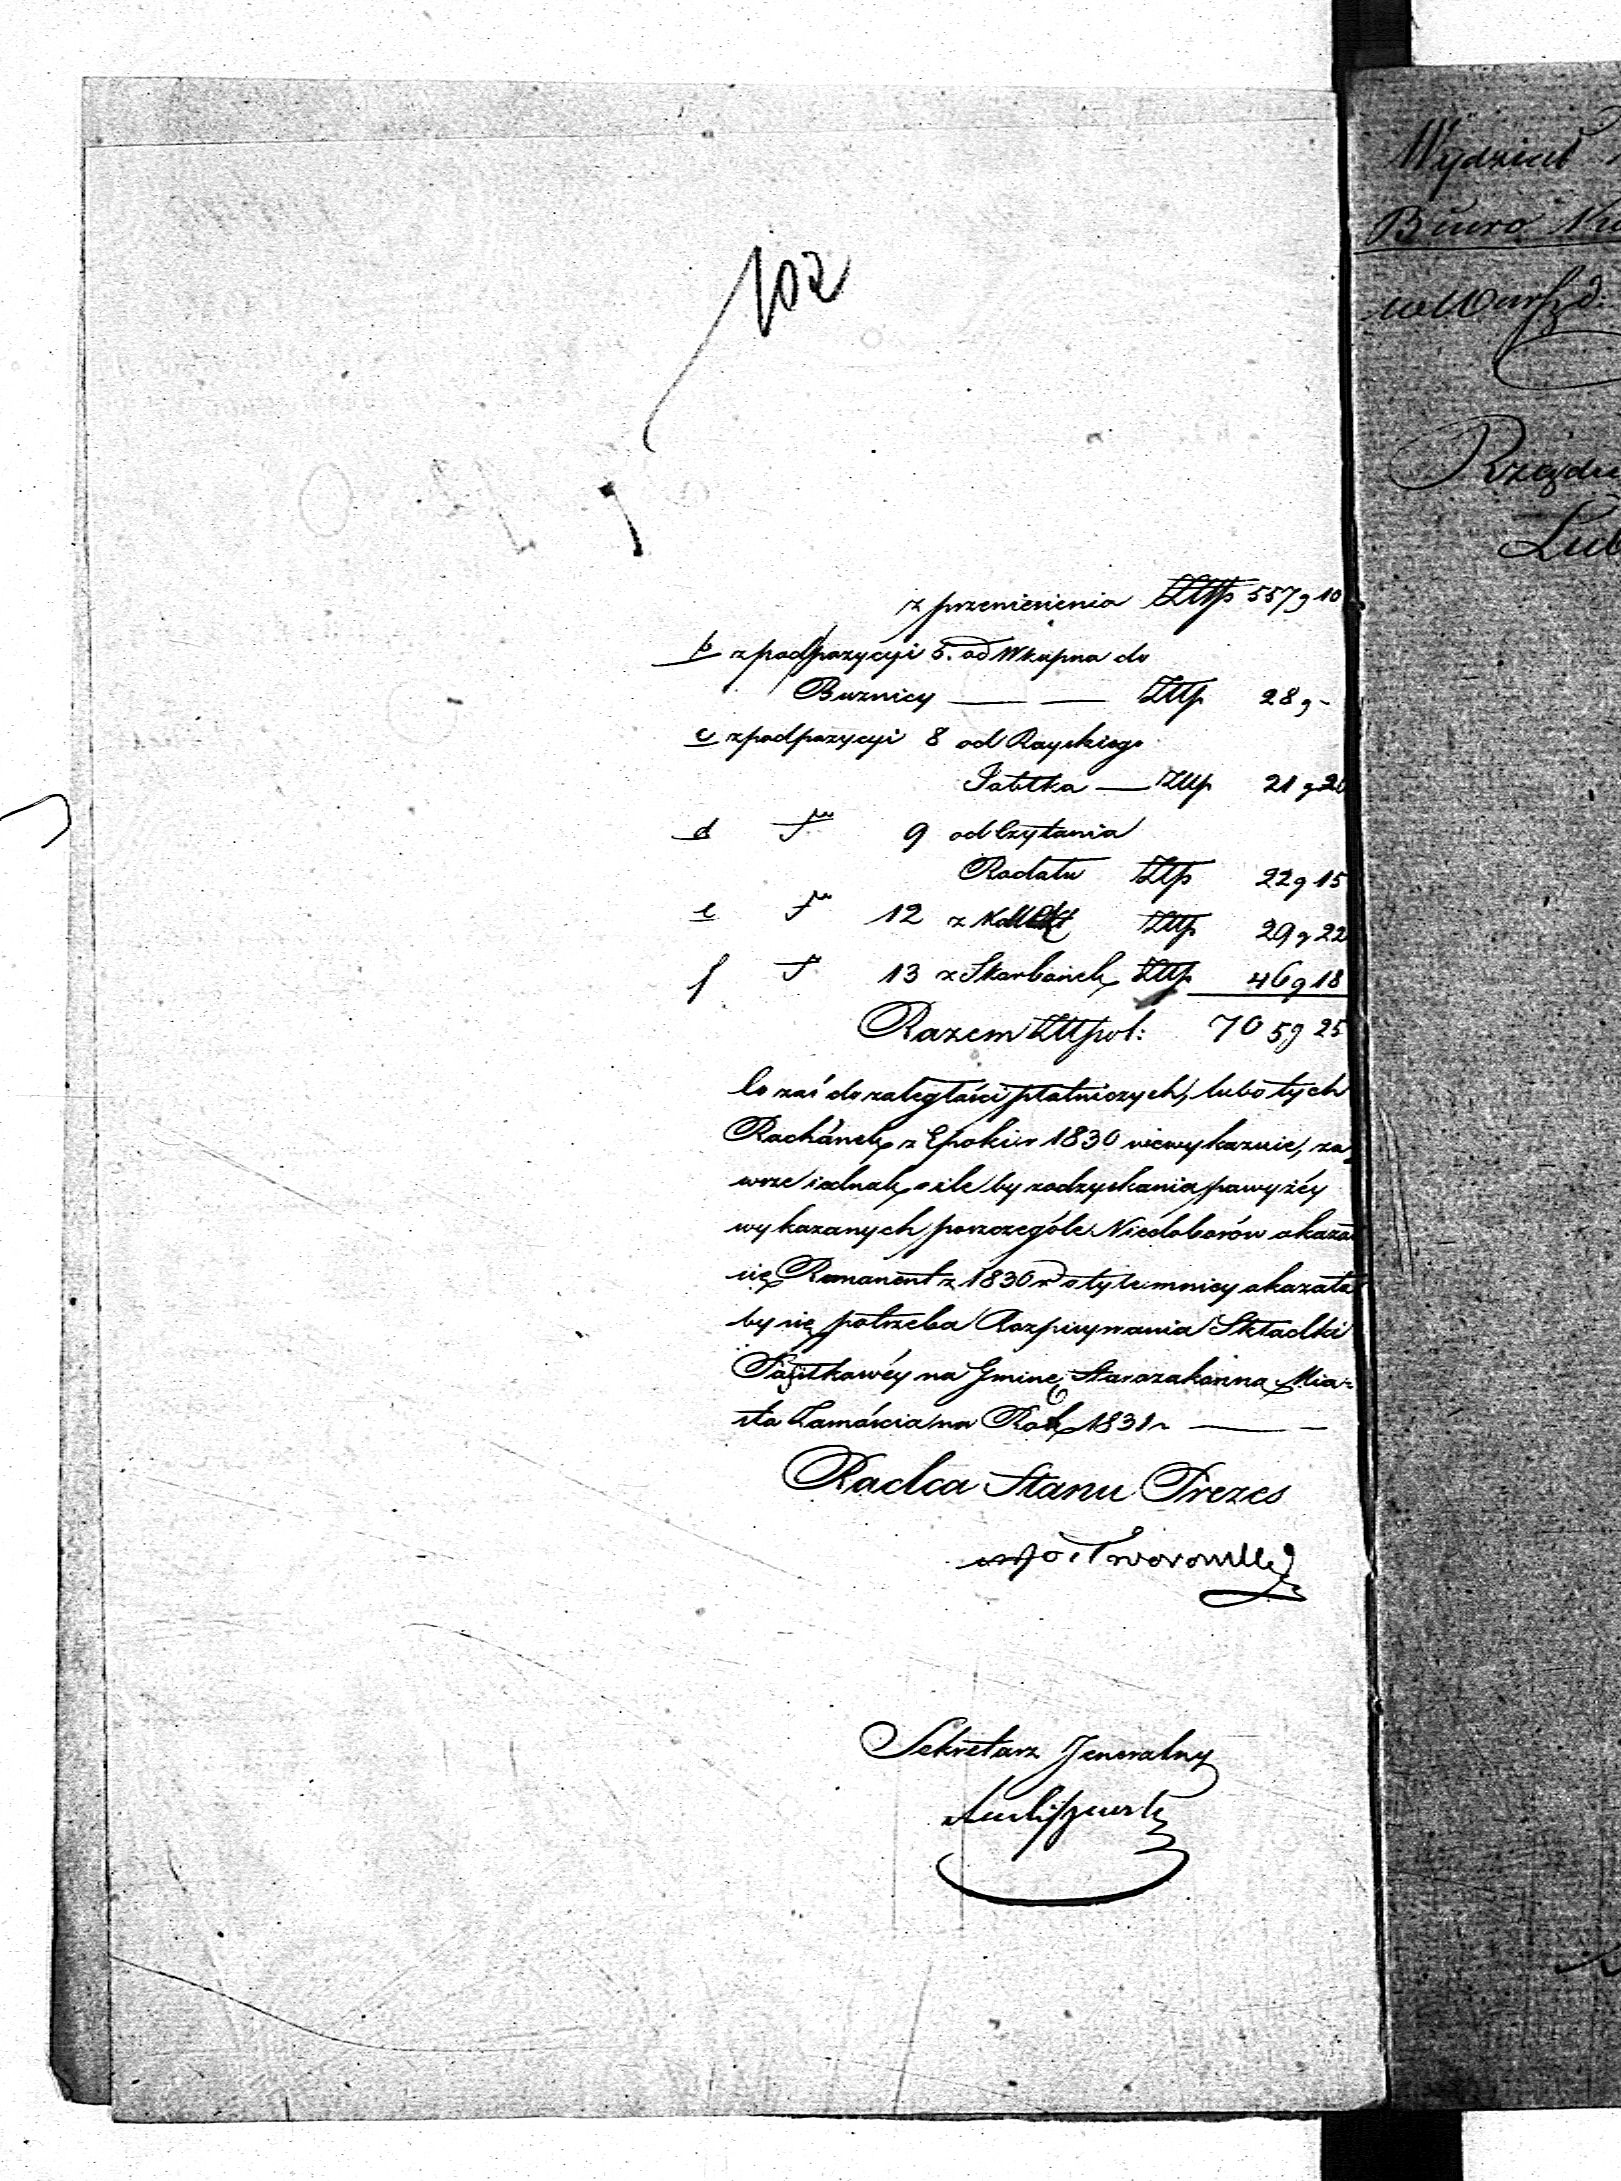 102
z przeniesienia ZŁłp 557 g 10
b z pod pozycyi 5. od Wkupna do
Buznicy — — Złłp 28 g -
c z pod pozycyi 8 od Rayskiego
Jabłka — Złłp 21 g 20
d 9 od Czytania
Rodału Złłp 22 g 15
e 12 z Złłp 29 g 22
f 13 z Skarbonek Złłp 46 g 18
Razem Złłpol: 705 g 25
Co zaś do zaległości płatniczych, lubo tych
Rachunek z Epoki r 1830 niewykazuie, za
wsze iednak o ile by z odzyskania powyżéy
wykazanych poszczególe Niedoborów okazał
się Remanent z 1830 r o tyle mniey okazała
by się potrzeba Rozpisywania Składki
Posiłkowéy na Gminę Starozakonną Mia-
sta Zamościa na Rok 1831 r — —
Radca Stanu Prezes
Sekretarz Jeneralny
Wydział
Biuro
w Warsz d:
Lub